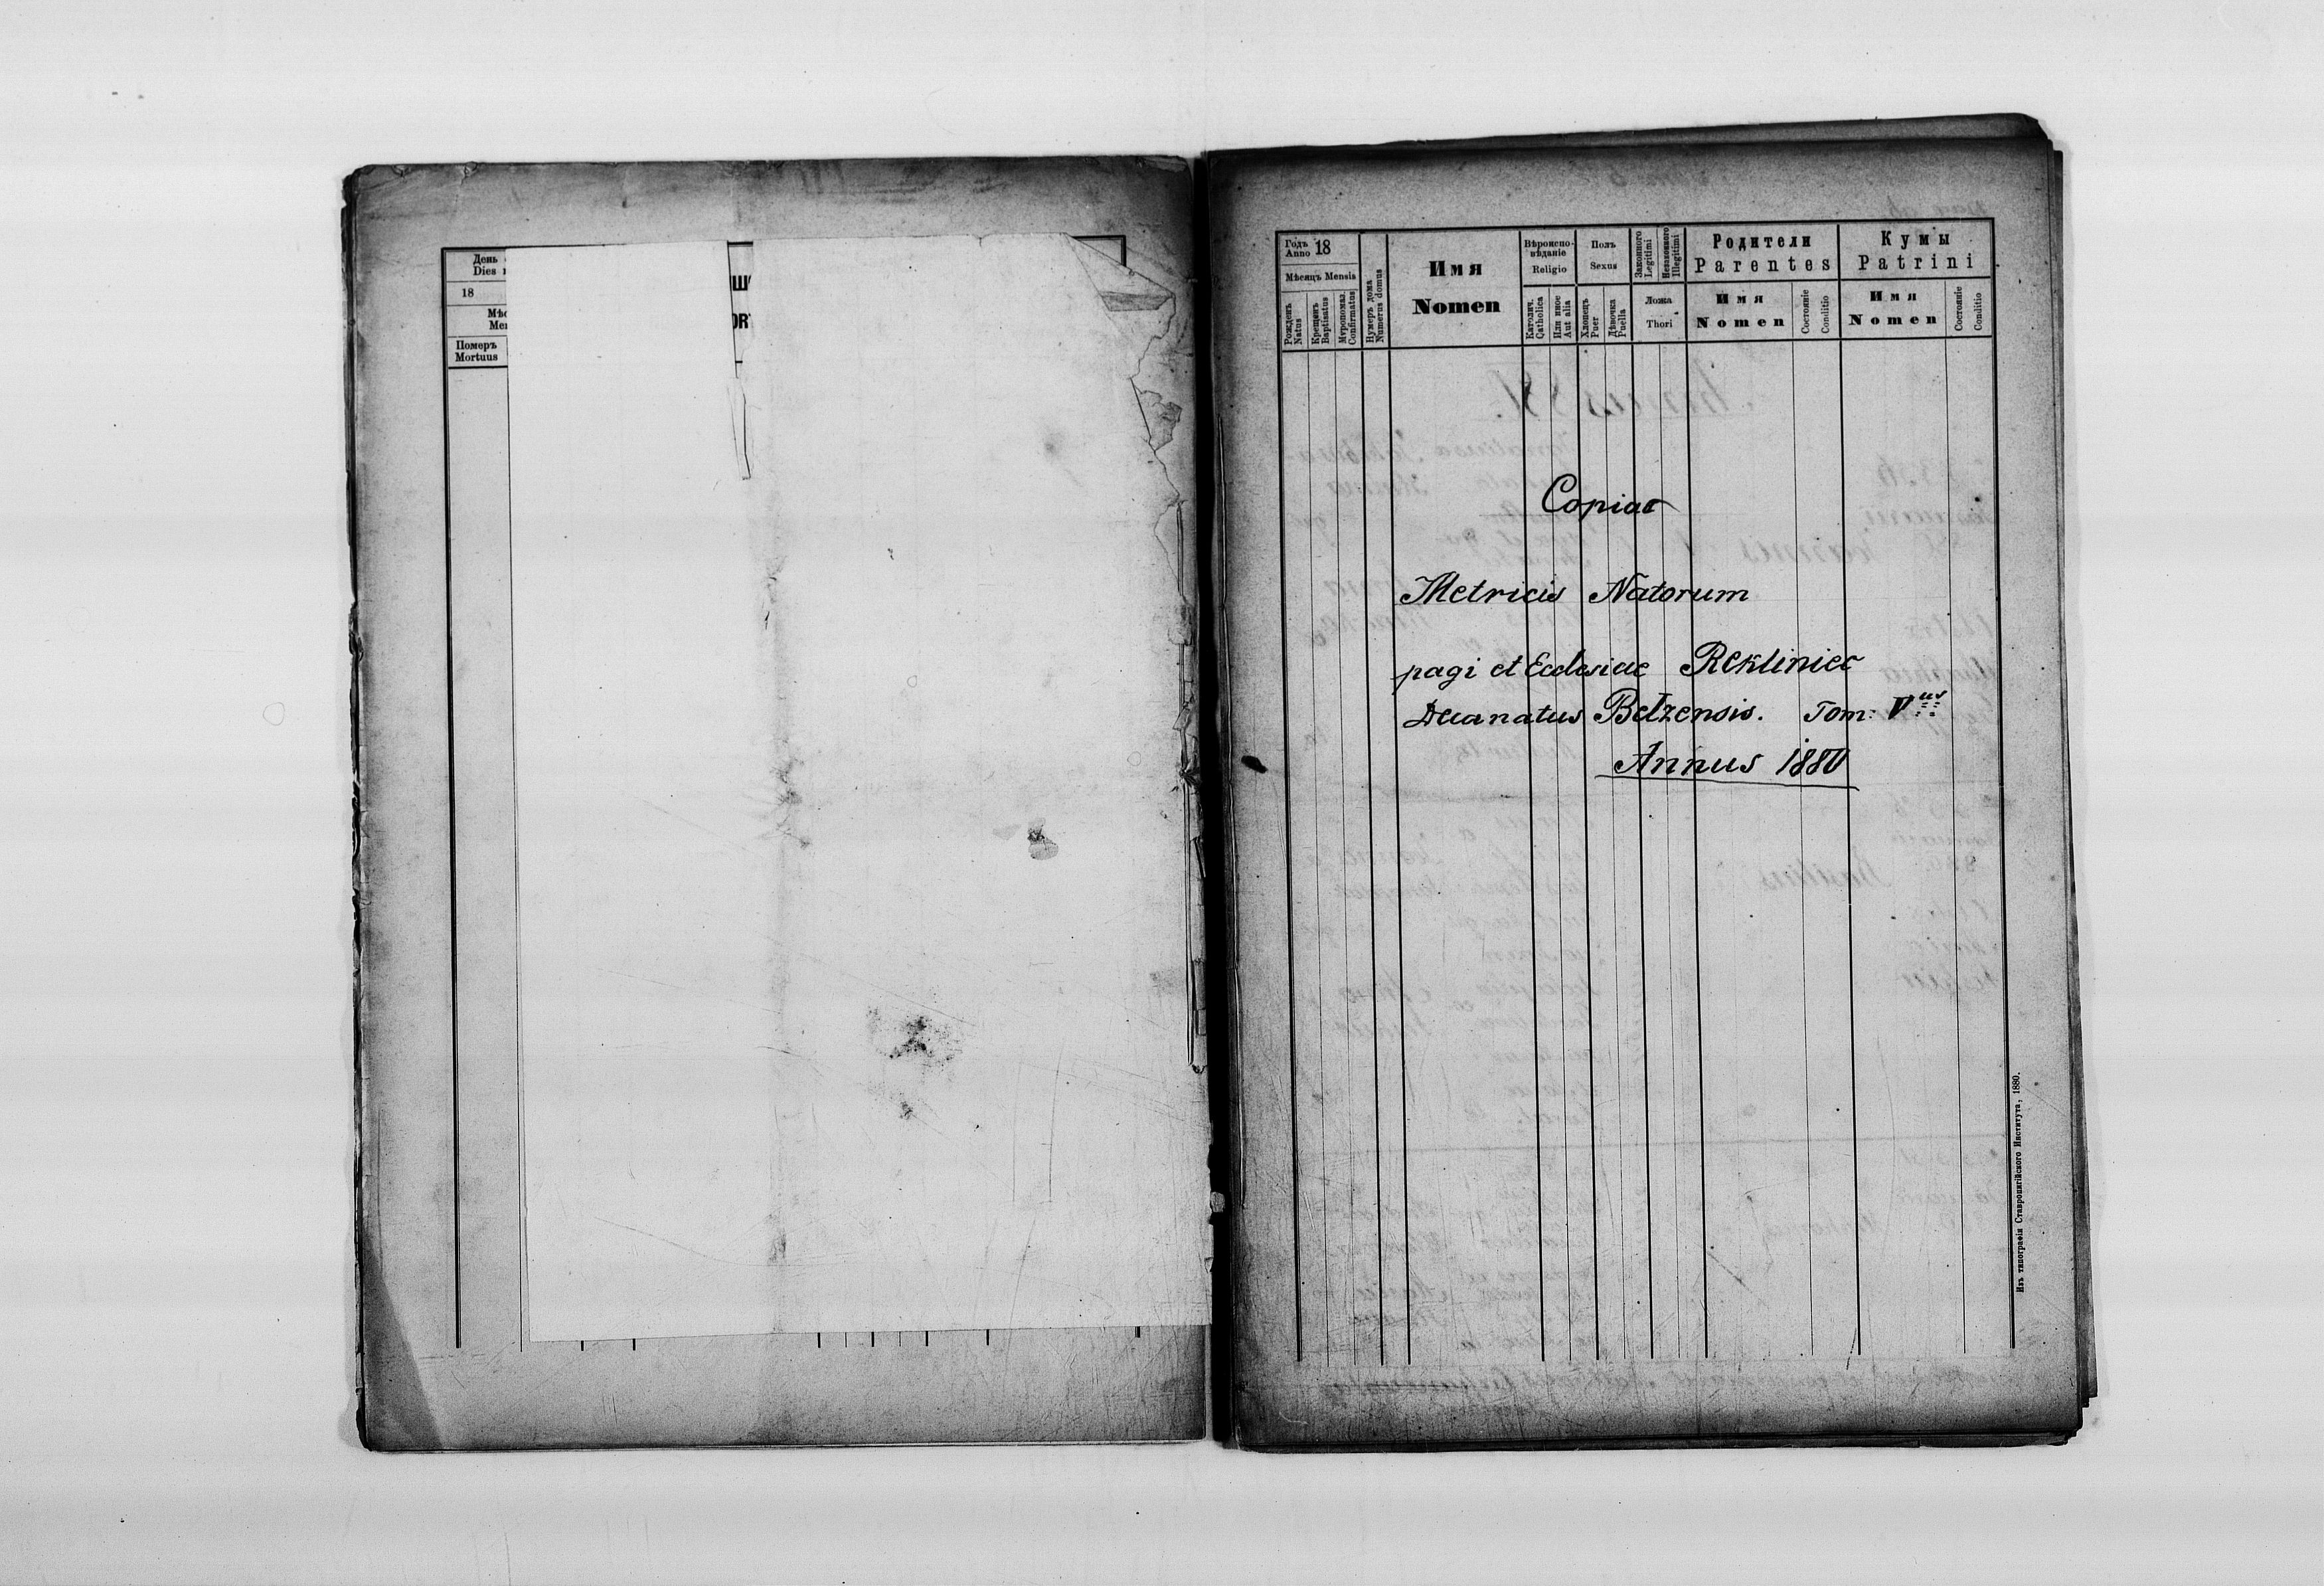 День
Dies
18
Померъ
Mortuus
Годъ 18
Anno
Мѣсяцъ Mensis
Рожденъ
Natus
Крещенъ
Baptisatus
Мѵропомаз.
Confirmatus
Нумеръ дома
Numerus domus
Имя
Nomen
Вѣроиспо-
вѣданіе
Religio
Католич.
Catholica
Или иное
Aut alia
Полъ
Sexus
Хлопецъ
Puer
Дѣвочка
Puella
Законного
Legitimi
Незаконного
Illegitimi
Ложа
Thori
Родители
Parentes
Имя
Nomen
Состояніе
Conditio
Кумы
Patrini
Имя
Nomen
Состояніе
Conditio
Copiae
Metricis Natorum
pagi et Ecclesiae Rekliniec
Decanatus Belzensis. Tom: V us
Annus 1880
Изъ типографіи Ставропигійского Института, 1880.